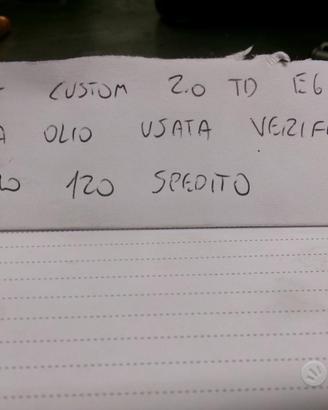 CUSTOM 2.0 TD E6
OLIO USATA VERIF
120 SPEDITO